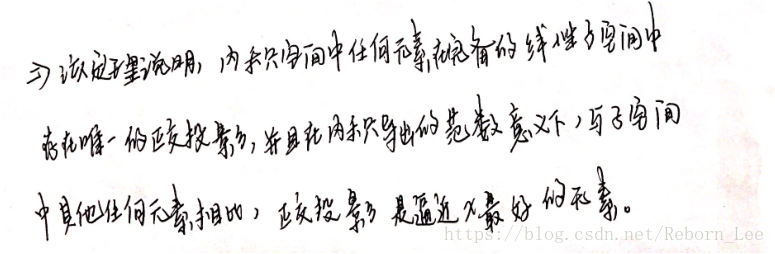 ⇒ 该定理说明，内积空间中任何元素在完备的线性子空间中
存在唯一的正交投影，并且在内积导出的范数意义下，与子空间
中其他任何元素相比，正交投影是逼近x最好的元素。
https://blog.csdn.net/Reborn_Lee